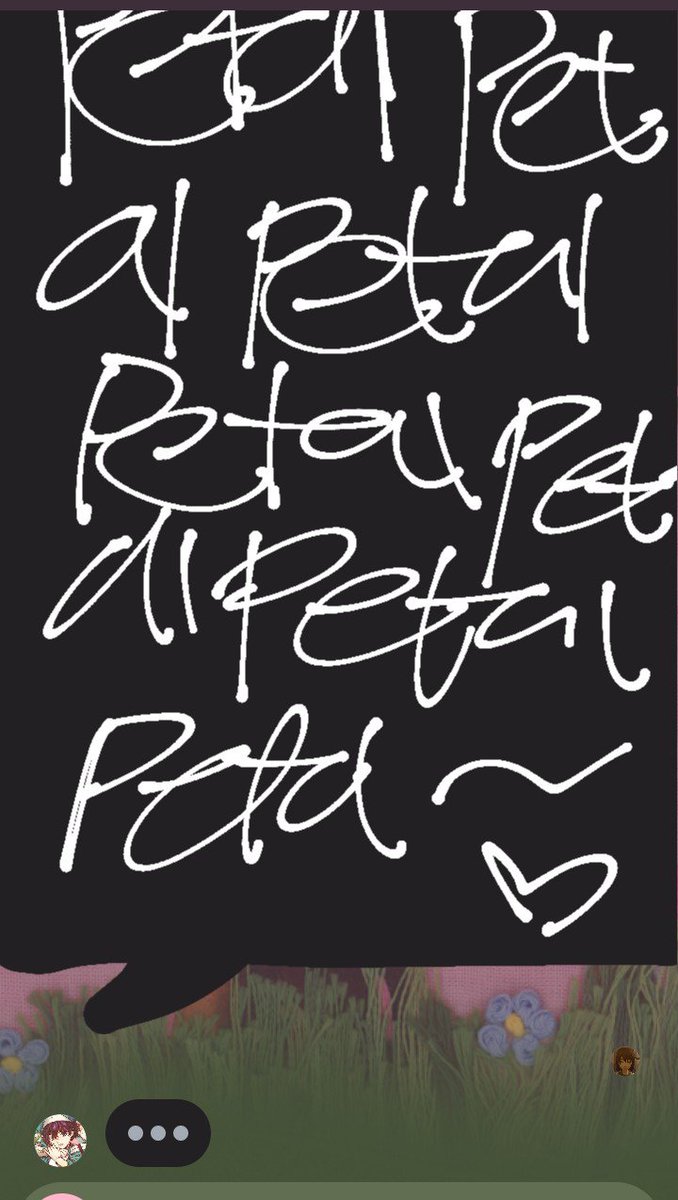 Petal Pet
al Petal
Petal Pet
al Petal
Petal ~ ♡